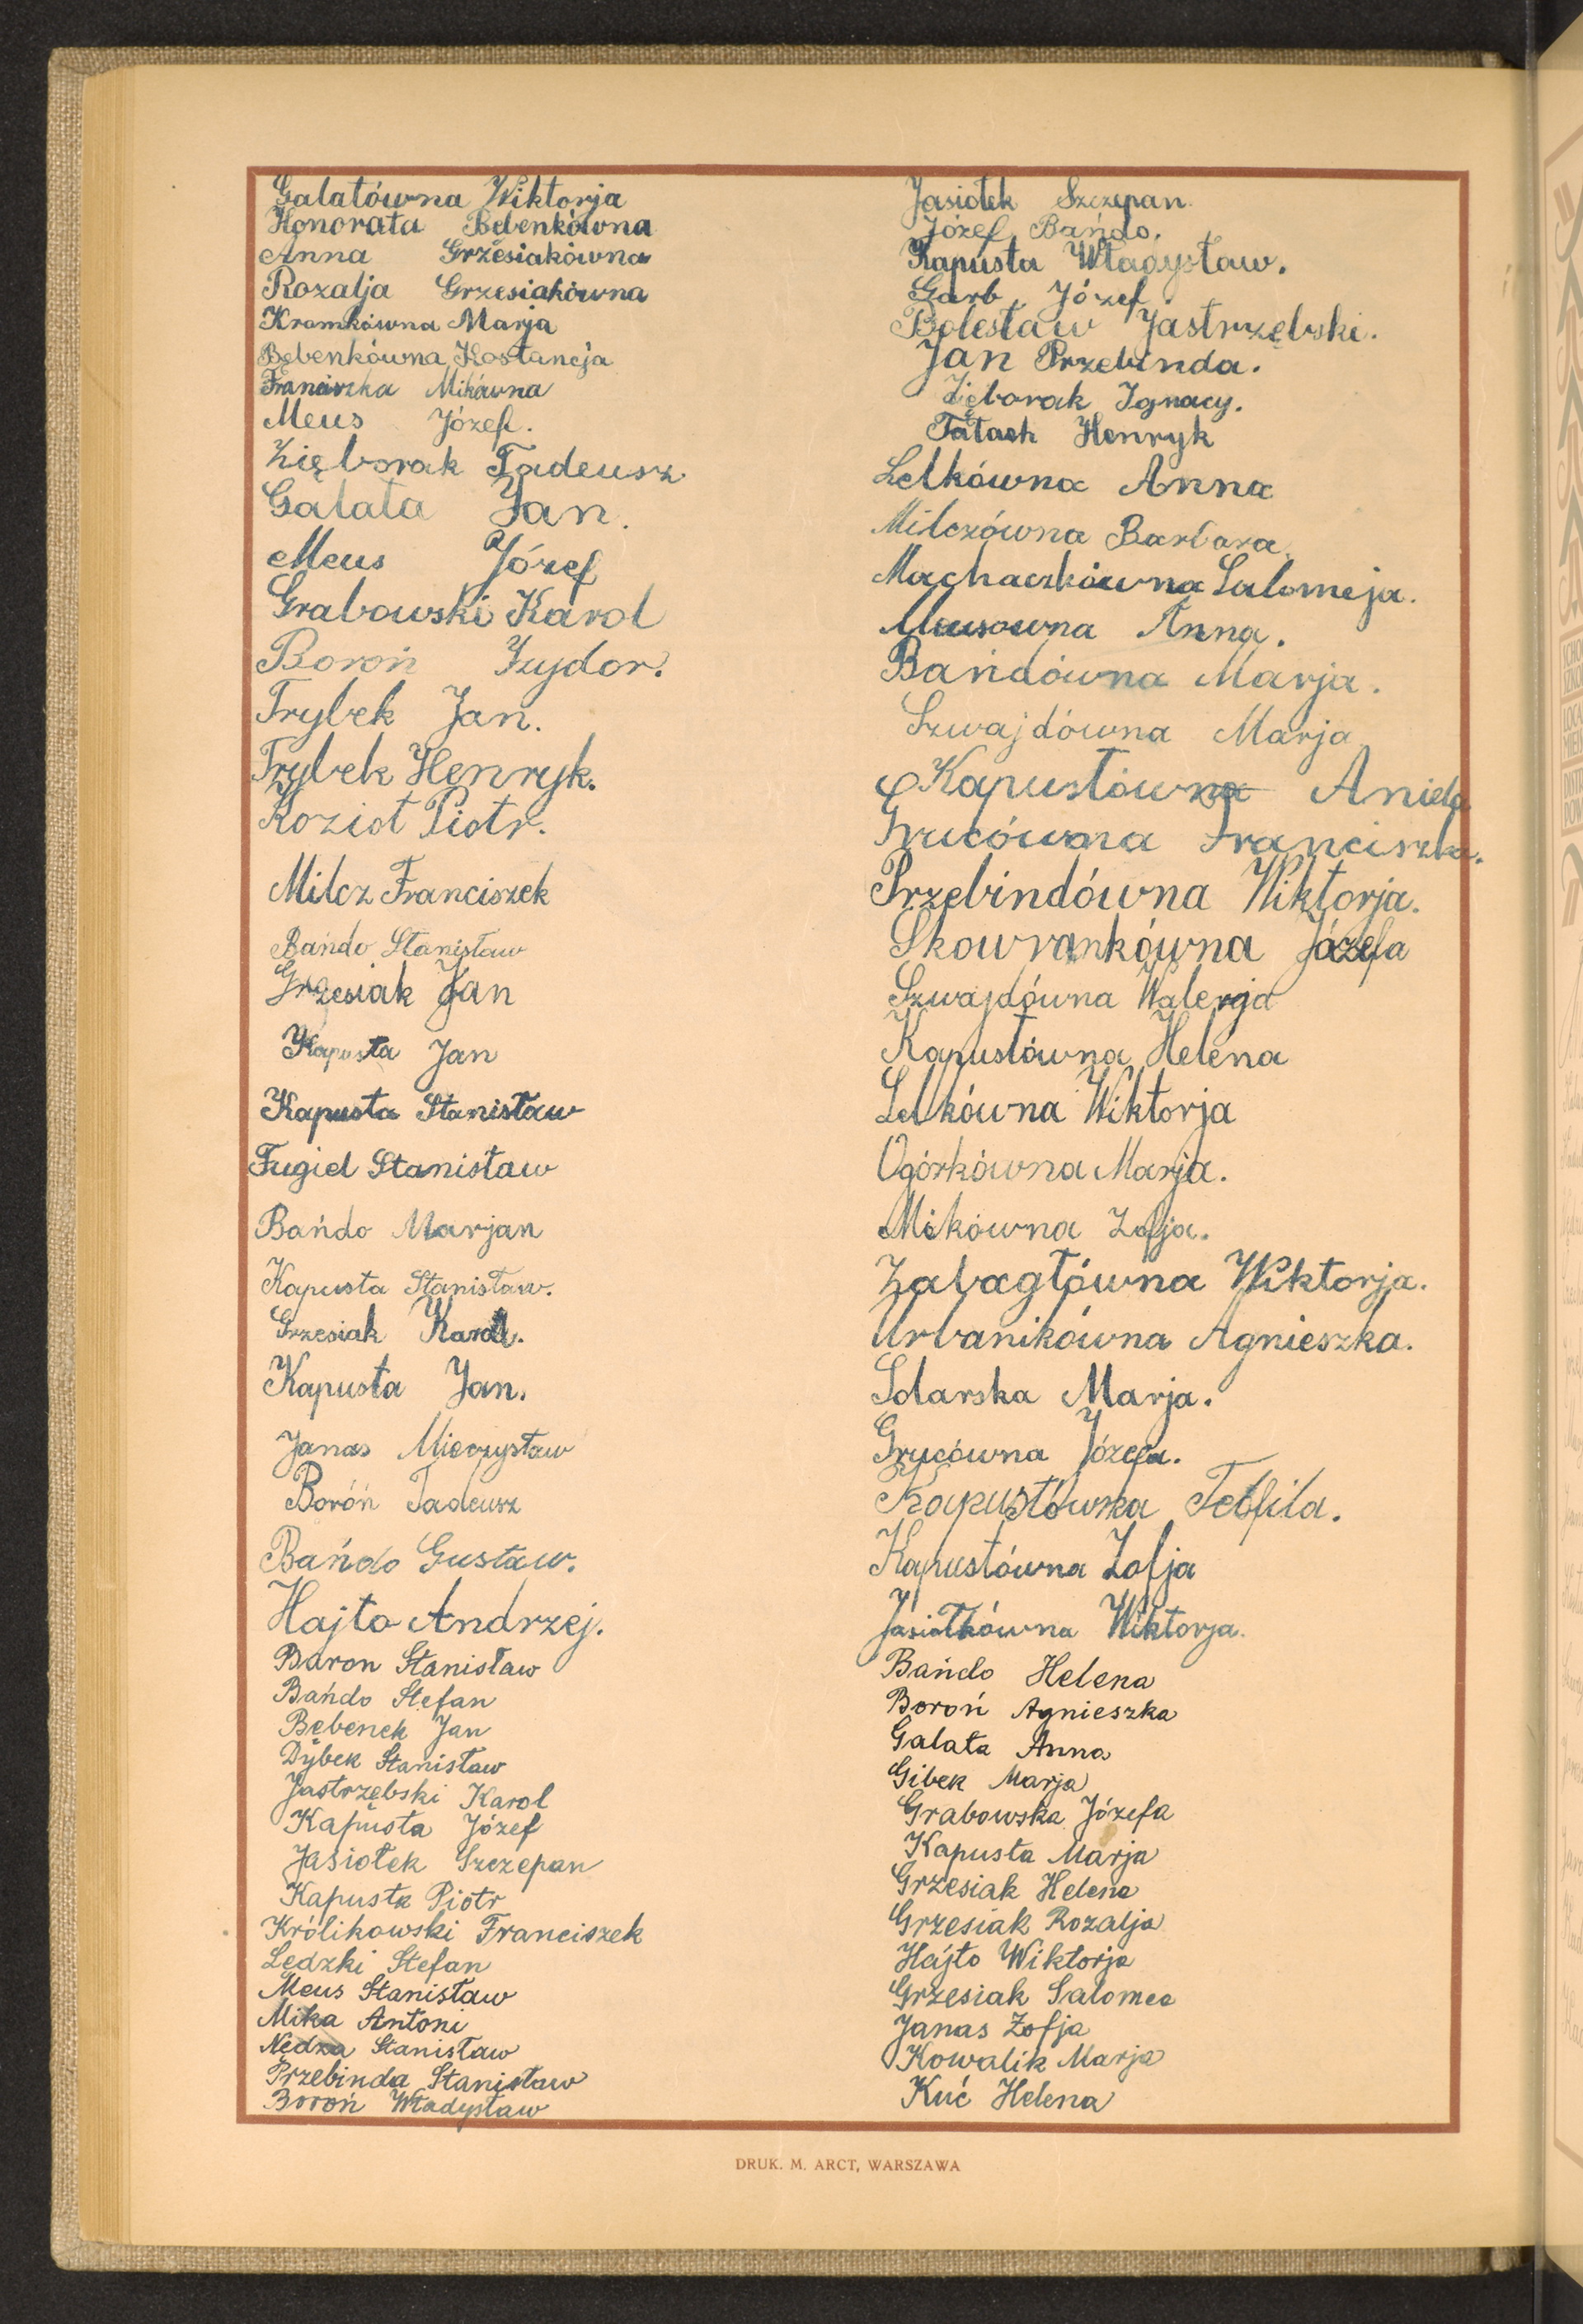 Galatówna Wiktorja
Honorata Bębenkówna
Anna Grzesiakówna
Rozalja Grzesiakówna
Kromkówna Marja
Bębenkówna Kostancja
Franciszka Mikówna
Meus Józef.
Zięborak Tadeusz
Galata Jan.
Meus Józef
Grabowski Karol
Boroń Izydor.
Trybek Jan.
Trybek Henryk.
Kozioł Piotr.
Milcz Franciszek
Bańdo Stanisław
Grzesiak Jan
Kapusta Jan
Kapusta Stanisław
Fugiel Stanisław
Bańdo Marjan
Kapusta Stanisław.
Grzesiak Karol.
Kapusta Jan.
Janas Mieczysław
Boroń Tadeusz
Bańdo Gustaw.
Hajto Andrzej.
Baron Stanisław
Bańdo Stefan
Bębenek Jan
Dybek Stanisław
Jastrzębski Karol
Kapusta Józef
Jasiołek Szczepan
Kapusta Piotr
Królikowski Franciszek
Lędzki Stefan
Meus Stanisław
Mika Antoni
Nędza Stanisław
Przebinda Stanisław
Boroń Władysław
Jasiołek Szczepan.
Józef Bańdo.
Kapusta Władysław.
Garb Józef.
Bolesław Jastrzębski.
Jan Przebinda.
Zięborak Ignacy.
Tatach Henryk
Lelkówna Anna
Milczówna Barbara.
Machaczkówna Salomeja.
Meusowna Anna.
Bańdówna Marja.
Szwajdówna Marja
Kapustówna Aniela
Grucówna Franciszka.
Przebindówna Wiktorja.
Skowronkówna Józefa
Szwajdówna Walerja
Kapustówna Helena
Lelkówna Wiktorja
Ogórkówna Marja.
Mikówna Zofja.
Zabagłówna Wiktorja.
Urbanikówna Agnieszka.
Solarska Marja.
Grucówna Józefa.
Kapustówna Teofila.
Kapustówna Zofja
Jasiołkówna Wiktorja.
Bańdo Helena
Boroń Agnieszka
Galata Anna
Gibek Marja
Grabowska Józefa
Kapusta Marja
Grzesiak Helena
Grzesiak Rozalja
Hajto Wiktorja
Grzesiak Salomea
Janas Zofja
Kowalik Marja
Kuć Helena
DRUK. M. ARCT, WARSZAWA